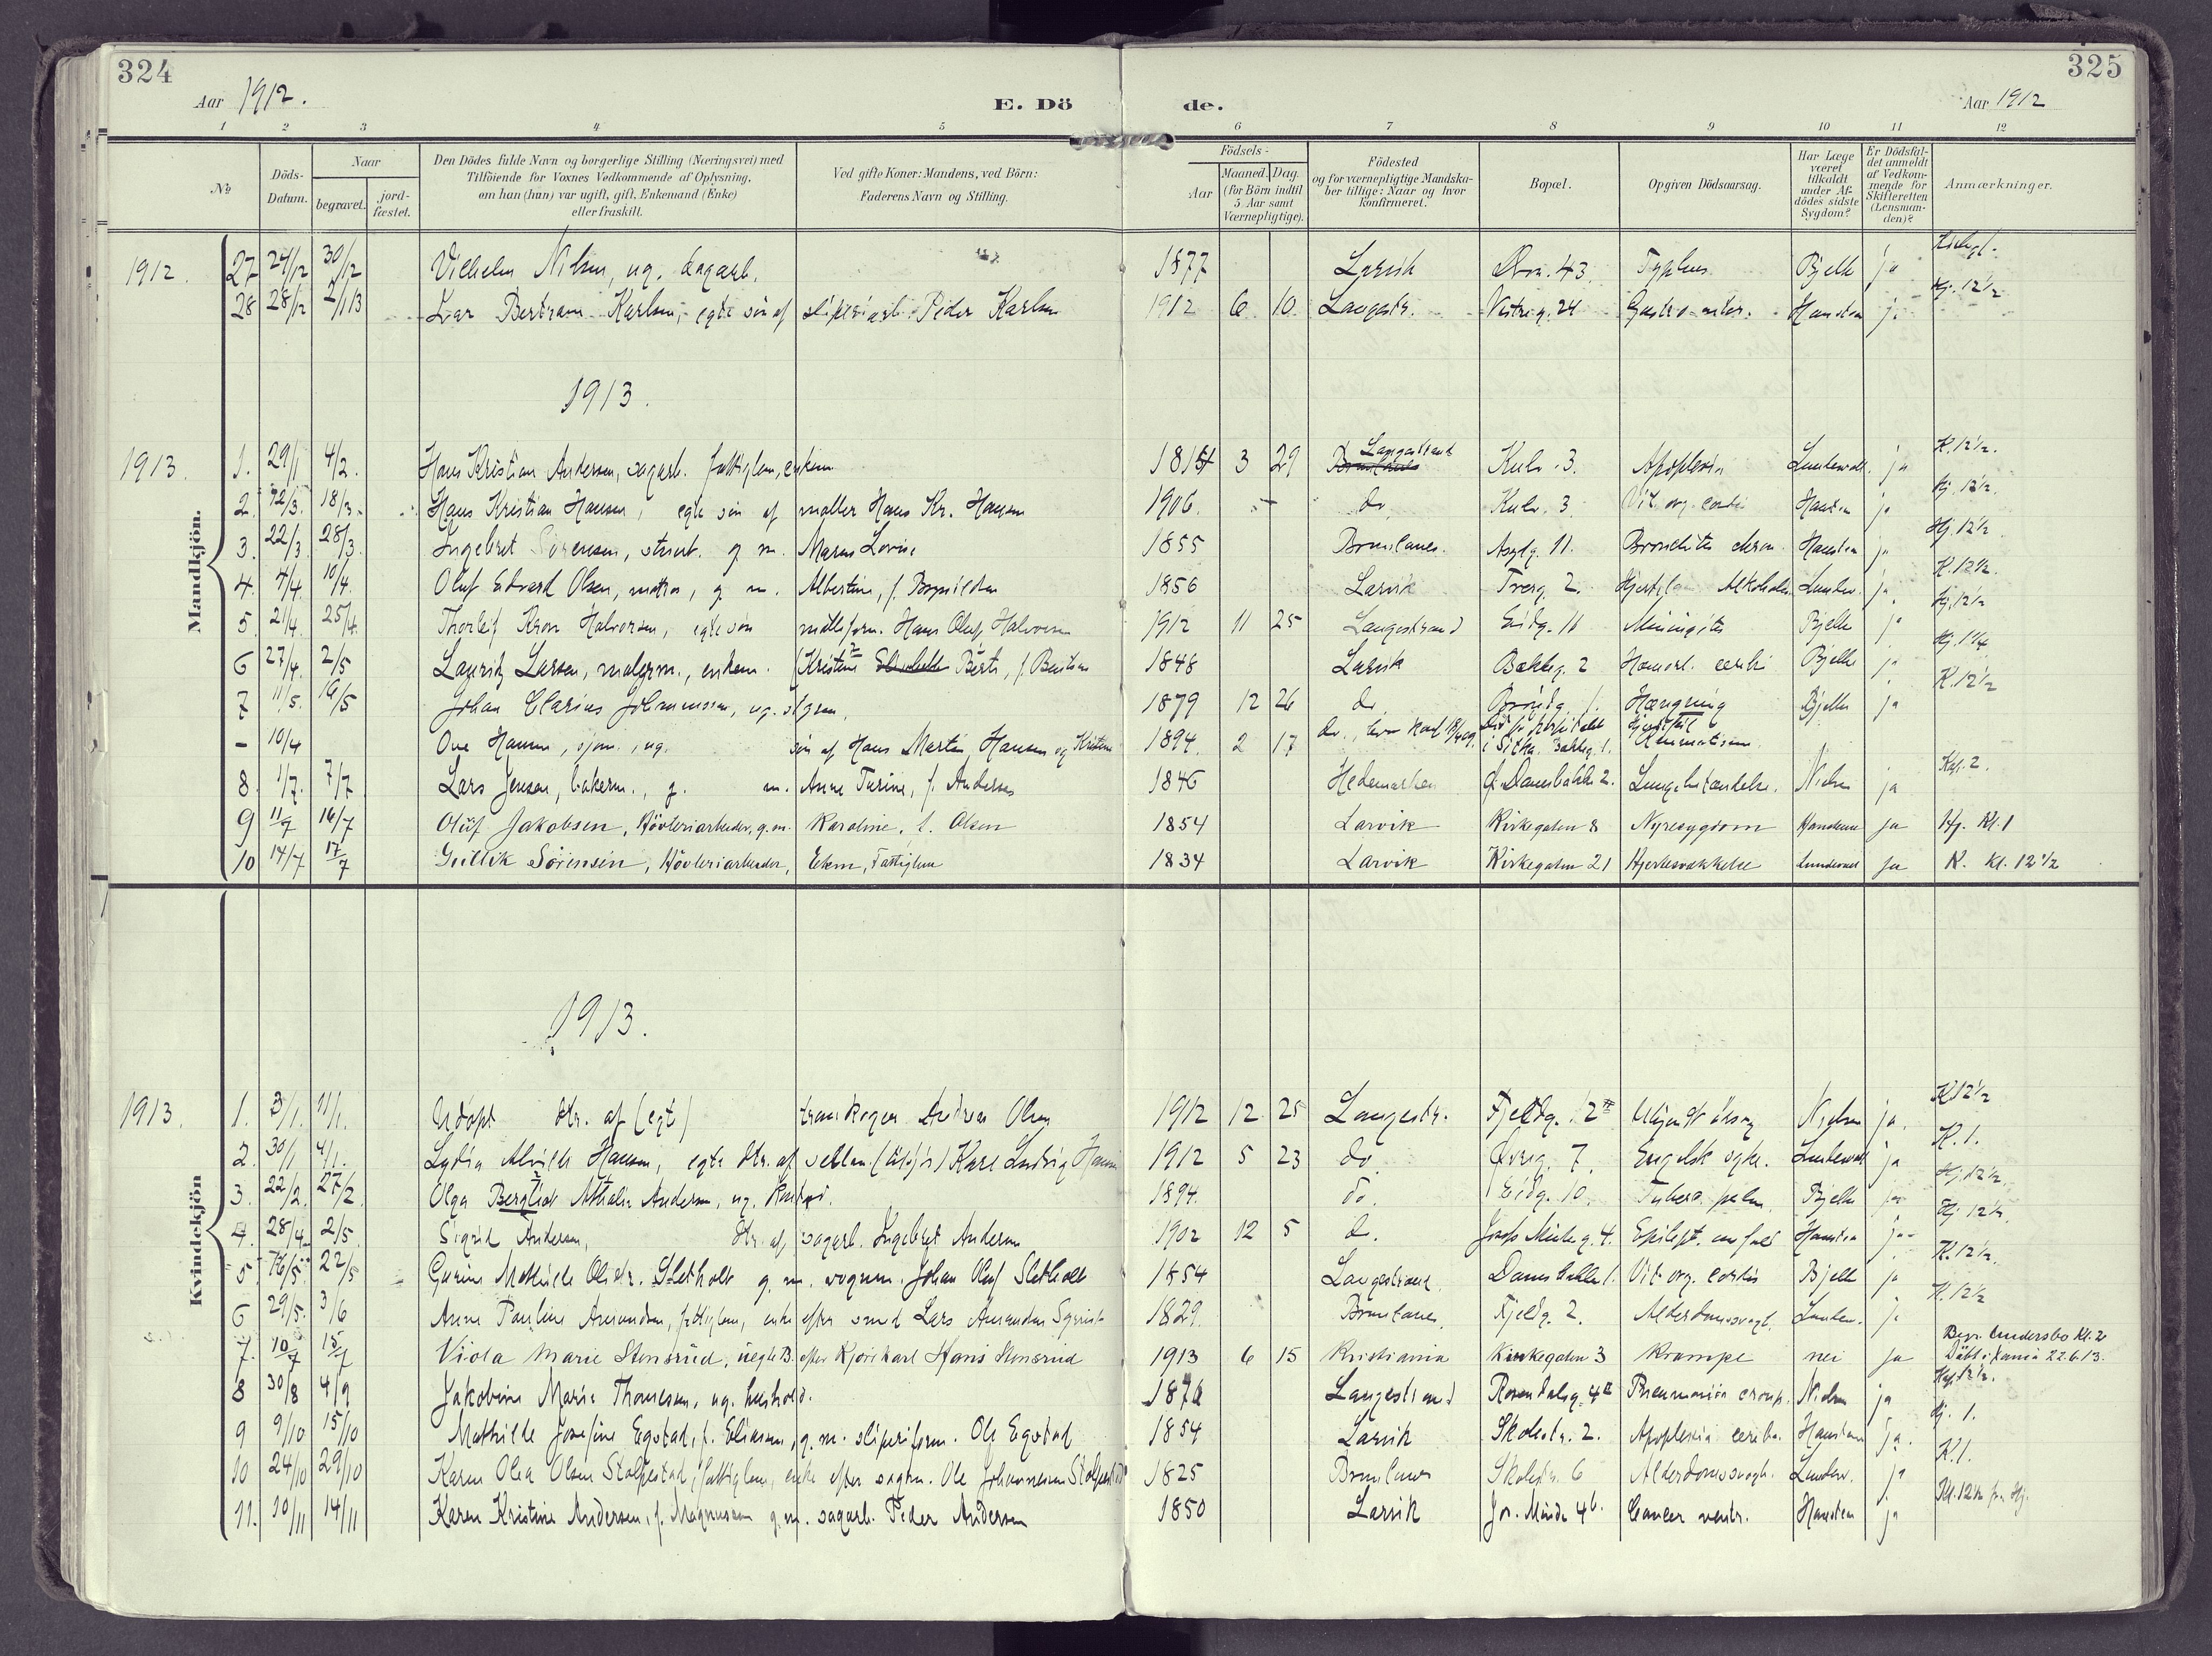 324
325
Aar 1912.
E. Dö
de.
Aar 1912
1 2 3 4 5 6 7 8 9 10 11 12
№
Döds-Datum.
Naar
begravet.
jord-fæstet.
Den Dödes fulde Navn og borgerlige Stilling (Næringsvei) med
Tilföiende for Voxnes Vedkommende af Oplysning,
om han (hun) var ugift, gift, Enkemand (Enke)
eller fraskilt.
Ved gifte Koner: Mandens, ved Börn:
Faderens Navn og Stilling.
Födsels-
Aar
Maaned. Dag.
(for Börn indtil
5 Aar samt
Værnepligtige).
Födested
og for værnepligtige Mandska-
ber tillige: Naar og hvor
konfirmeret.
Bopæl.
Opgiven Dödsaarsag.
Har Læge
været
tilkaldt
under Af-
dödes sidste
Sygdom?
Er Dödsfal-
det anmeldt
af Vedkom-
mende for
Skifteretten
(Lensman-
den)?
Anmærkninger.
Mandkjön.
1912. 27 24/12 30/12 Vilhelm Nilsen, ug. dagarb. 1877 Larvik 43 Typhus Bjelke ja
28 28/12 2/1 13 Ivar Bertram Karlsen, egte sön af sliperiarb. Peder Karlsen 1912 6 10 Langestr. Vestreg. 24 Gastro-enter. Hanstein ja Hj. 12½
1913.
1913. 1. 29/1 4/2. Hans Kristian Andersen, sagarb. fattiglem, enkem 1815 3 29 Langestrand Kulv. 3. Apoplexia Lundewall. ja K. 12½.
2. 12/3. 18/3. Hans Kristian Hansen, egte sön af möller Hans Kr. Hansen 1906. - do. Kulv. 3. Vit. org. cordis Hanstein ja Hj. 12½.
3. 22/3 28/3. Ingebret Sörensen, g. m. Maren Lovise 1855 Brunlanes. Asylg. 11. Bronchitis chron. Hanstein ja Hj. 12½
4. 4/4 10/4. Oluf Edvard Olsen, matros, g. m. Albertine, f. 1856 Larvik Tverg. 2. Lundew. ja. K. 12½.
5. 21/4. 25/4. Thorleif Kron Halvorsen, egte sön mölleform. Hans Oluf Halvorsen 1912 11 25 Langestrand Eidg. 11 Meningitis Bjelke ja Hj. 12½
6 27/4. 2/5 Lauritz Larsen, malerm., enkem. (Kristine Berte, f. 1848 Larvik Bakkeg. 2 Bjelke ja Hj. 1¼
7 11/5. 16/5 Johan Clarius Johannessen, ug. 1879 12 26 do. Hængning Bjelke ja K. 12½
- 10/4 Ove Hansen, sjöm., ug. sön af Hans Martin Hansen og Kristine 1894. 2 17 do. Bakkeg. 1. Hjertefeil Rheumatisme
8. 1/7. 7/7 Lars Jensen, bakerm., g. m. Anne Turine, f. Andersen 1846 Hedemarken Damsbakke 2. Lungebetændelse. Nielsen ja Kap. 2.
9 11/7 16/7 Olüf Jakobsen, Hövleriarbeider, g. m. Karoline, f. Olsen 1854 Larvik Kirkegaten 8 Nyresygdom Hansteen ja Hj. Kl. 1
10 14/7 17/7 Gullik Sörensen, Hövleriarbeider, Ekm, Fattiglem 1834 Larvik Kirkegaten 21 Hjertesvækkelse Lundewall ja K. Kl. 12½
Kvindekjön
1913.
1913. 1. 3/1. 11/1. Udöpt dtr. af (egt) Andreas Olsen 1912 12 25 Langestr. Fjeldg. 2 Nielsen ja. K 12½
2. 30/1 4/1. Lydia Alvilde Hansen, egte dtr. af Karl Ludvig Hansen 1912 5 23 do. 7. Engelsk syke. Lundewall ja K. 1.
3. 22/2. 27/2. Olga Bergliot Athalie Andersen, ug. 1894. do. Eidg. 10. Tuberc. pulm. Bjelke ja Hj. 12½.
4. 28/4 2/5. Sigrid Andersen, dtr. af sagarb. Ingebret Andersen 1902 12 5 do. 4. Epilept. anfald Hanstein ja Hj. 12½.
5. 16/5. 22/5 Gurine Mathilde Olsdtr. Sletholt g. m. vognm. Johan Oluf Sletholt 1854 Langestrand Damsbakke 1. Vit. org. cordis Bjelke ja K. 12½.
6 29/5. 3/6 Anne Pauline Amundsen, fattiglem, enke efter smed Lars Amundsen 1829. Brunlanes. Fjeldg. 2. Alderdomssvagh. Lundew. ja K. 12½
7. 10/7 15/7 Viola Marie Stensrüd, üegte B. efter Kjörekarl Hans Stensrüd 1913 6 15 Kristiania Kirkegaten 3 Krampe nei ja Begr. Undersbo Kl. 2 Döbt i Xania 22.6.13.
8 30/8 4/9 Jakobine Marie Thomesen, ug. hushold. 187 Langestrand Rosendalsg. 4 Pneumonia croup. Nielsen ja
9 9/10 15/10 Mathilde Josefine Egstad, f. Eliasen, g. m. sliperiform. Ole Egstad 1854 Larvik Skolestr. 2. Apoplexia cerebr. Hanstein ja. Hj. 1.
10 24/10 29/10 Karen Olea Olsen Stolpestad, fattiglem, enke efter sagm. Ole Johannesen Stolpestad 1825 Brunlanes Skolestr. 6 Alderdomssvagh. Lundew. ja K 1.
11. 10/11 14/11 Karen Kristine Andersen, f. Magnussen g. m. sagarb. Peder Andersen 1850 Larvik Cancer ventr. Hanstein ja Kl. 12½ fra Hj.